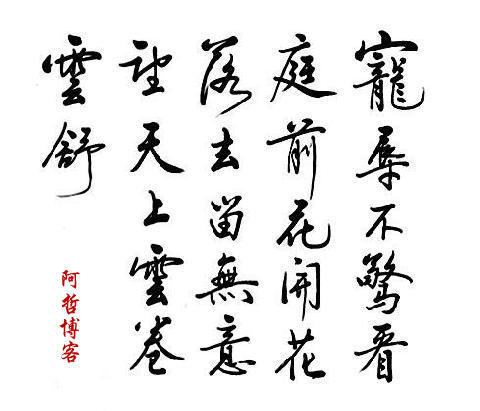 寵辱不驚看
庭前花開花
落去留無意
望天上雲卷
雲舒
阿哲博客